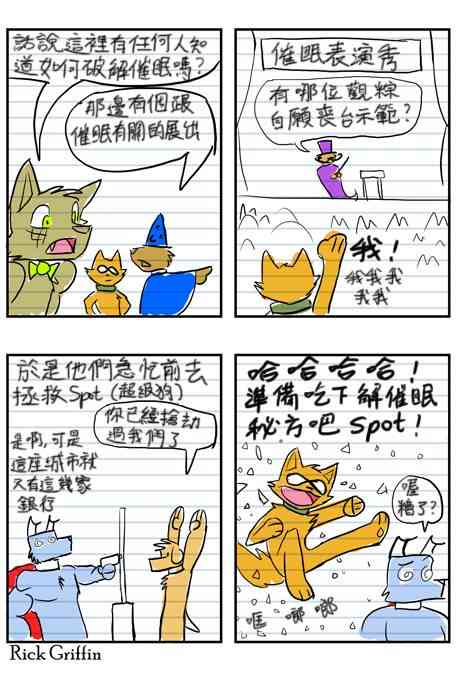 話說這裡有任何人知
道如何破解催眠嗎?
那邊有個跟
催眠有關的展出
催眠表演秀
有哪位觀粽
自願喪台示範?
我!
我我我
我我
於是他們急忙前去
拯救Spot (超級狗)
你已經搶劫
過我們了
是啊,可是
這座城市就
只有這幾家
銀行
哈哈哈哈!
準備吃下解催眠
秘方吧 Spot!
喔
糟了?
哐 啷 啷
Rick Griffin